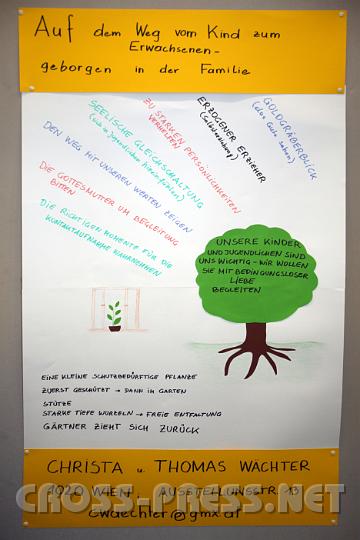 Auf dem Weg vom Kind zum
Erwachsenen-
geborgen in der Familie
GOLDGRÄBERBLICK
(das Gute sehen)
ERZOGENER ERZIEHER
(Selbsterziehung)
ZU STARKEN PERSÖNLICHKEITEN
VERHELFEN
SEELISCHE GLEICHSCHALTUNG
DEN WEG MIT UNSEREN WERTEN ZEIGEN
DIE GOTTESMUTTER UM BEGLEITUNG
BITTEN
DIE RICHTIGEN MOMENTE FÜR DIE
KONTAKTAUFNAHME WAHRNEHMEN
UNSERE KINDER
UND JUGENDLICHEN SIND
UNS WICHTIG - WIR WOLLEN
SIE MIT BEDINGUNGSLOSER
LIEBE
BEGLEITEN
EINE KLEINE SCHUTZBEDÜRFTIGE PFLANZE
ZUERST GESCHÜTZT → DANN IM GARTEN
STÜTZE
STARKE TIEFE WURZELN → FREIE ENTFALTUNG
GÄRTNER ZIEHT SICH ZURÜCK
CHRISTA u. THOMAS WÄCHTER
1020 WIEN AUSSTELLUNGSSTR.
CROSS-PRESS.NET
cwaechter@gmx.at